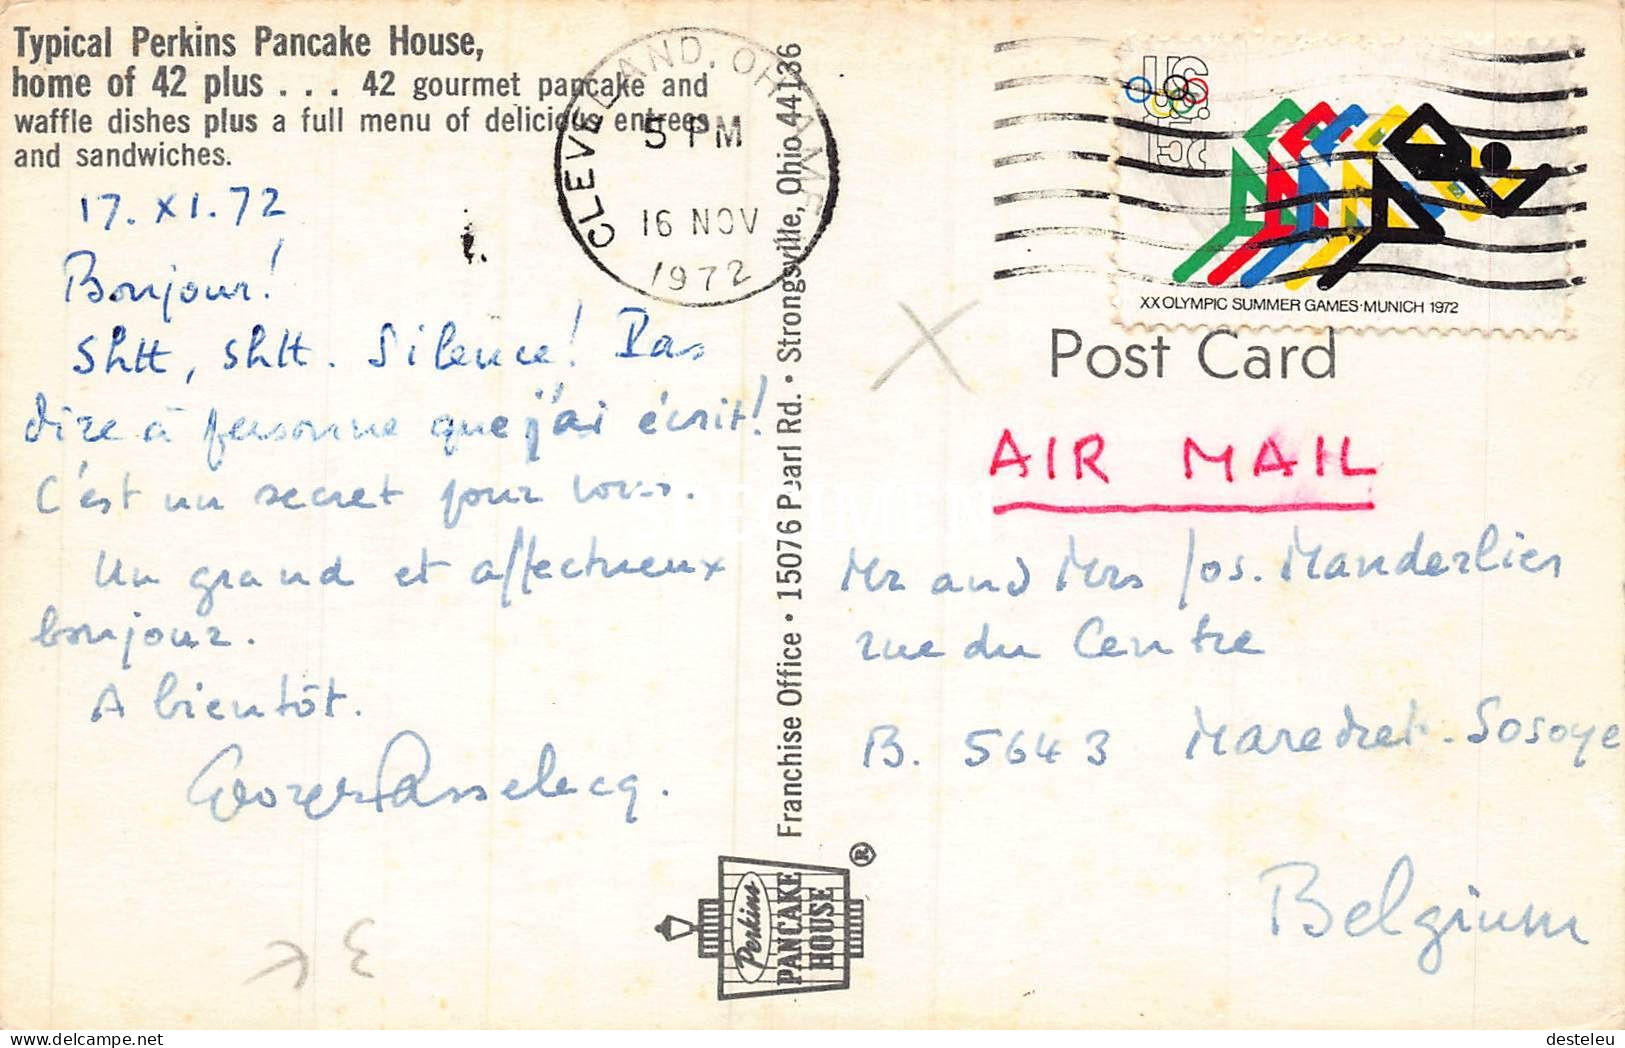 Typical Perkins Pancake House,
home of 42 plus . . . 42 gourmet pancake and
waffle dishes plus a full menu of delicious entrees
and sandwiches.
17. XI. 72
Bonjour!
Shtt, shtt. Silence! Pas
dire à personne que j'ai écrit!
C'est un secret pour vous.
Un grand et affectueux
bonjour.
A bientôt.
CLEVELAND, OH
5 PM
16 NOV
1972
Franchise Office • 15076 Pearl Rd. • Strongsville, Ohio 44136
Perkins
PANCAKE
HOUSE
®
US
15c
XX OLYMPIC SUMMER GAMES·MUNICH 1972
Post Card
AIR MAIL
Mr and Mrs Jos. Manderlier
rue du Centre
B. 5643 Maredret-Sosoye
Belgium
SPECIMEN
desteleu